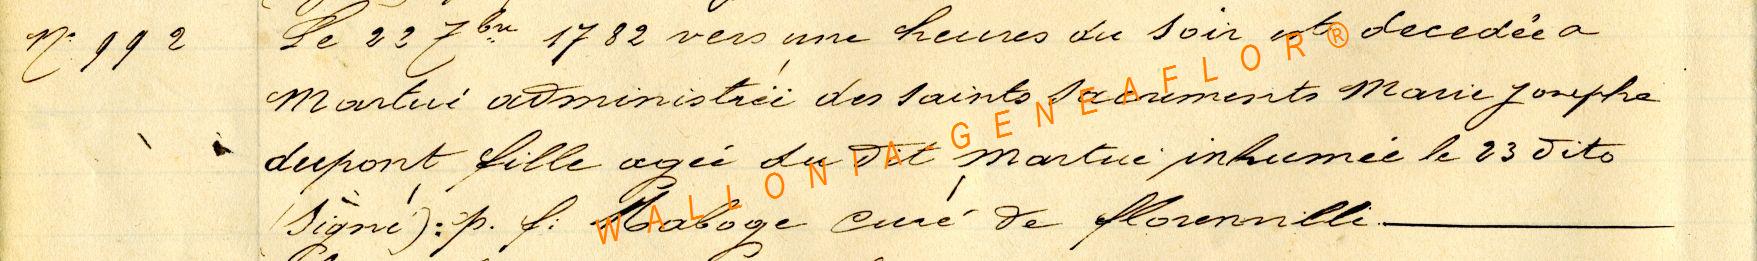 N° 992
Le 22 7bre 1782 vers une heures du soir est decedée a
Martué administréé des saints sacrements Marie Josephe
dupont fille ageé du dit Martué inhumée le 23 dito
(signé): p. f. Maboge curé de florenville.
WALLONIA GENEAFLOR®